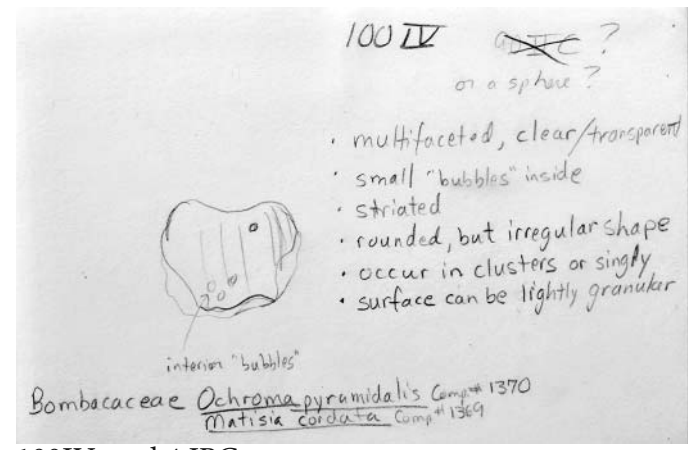 100 IV ?
or a sphere ?
· multifaceted, clear/transparent
· small "bubbles" inside
· striated
· rounded, but irregular shape
· occur in clusters or singly
· surface can be lightly granular
interior "bubbles"
Bombacaceae Ochroma pyramidalis Comp# 1370
Matisia cordata Comp# 1369